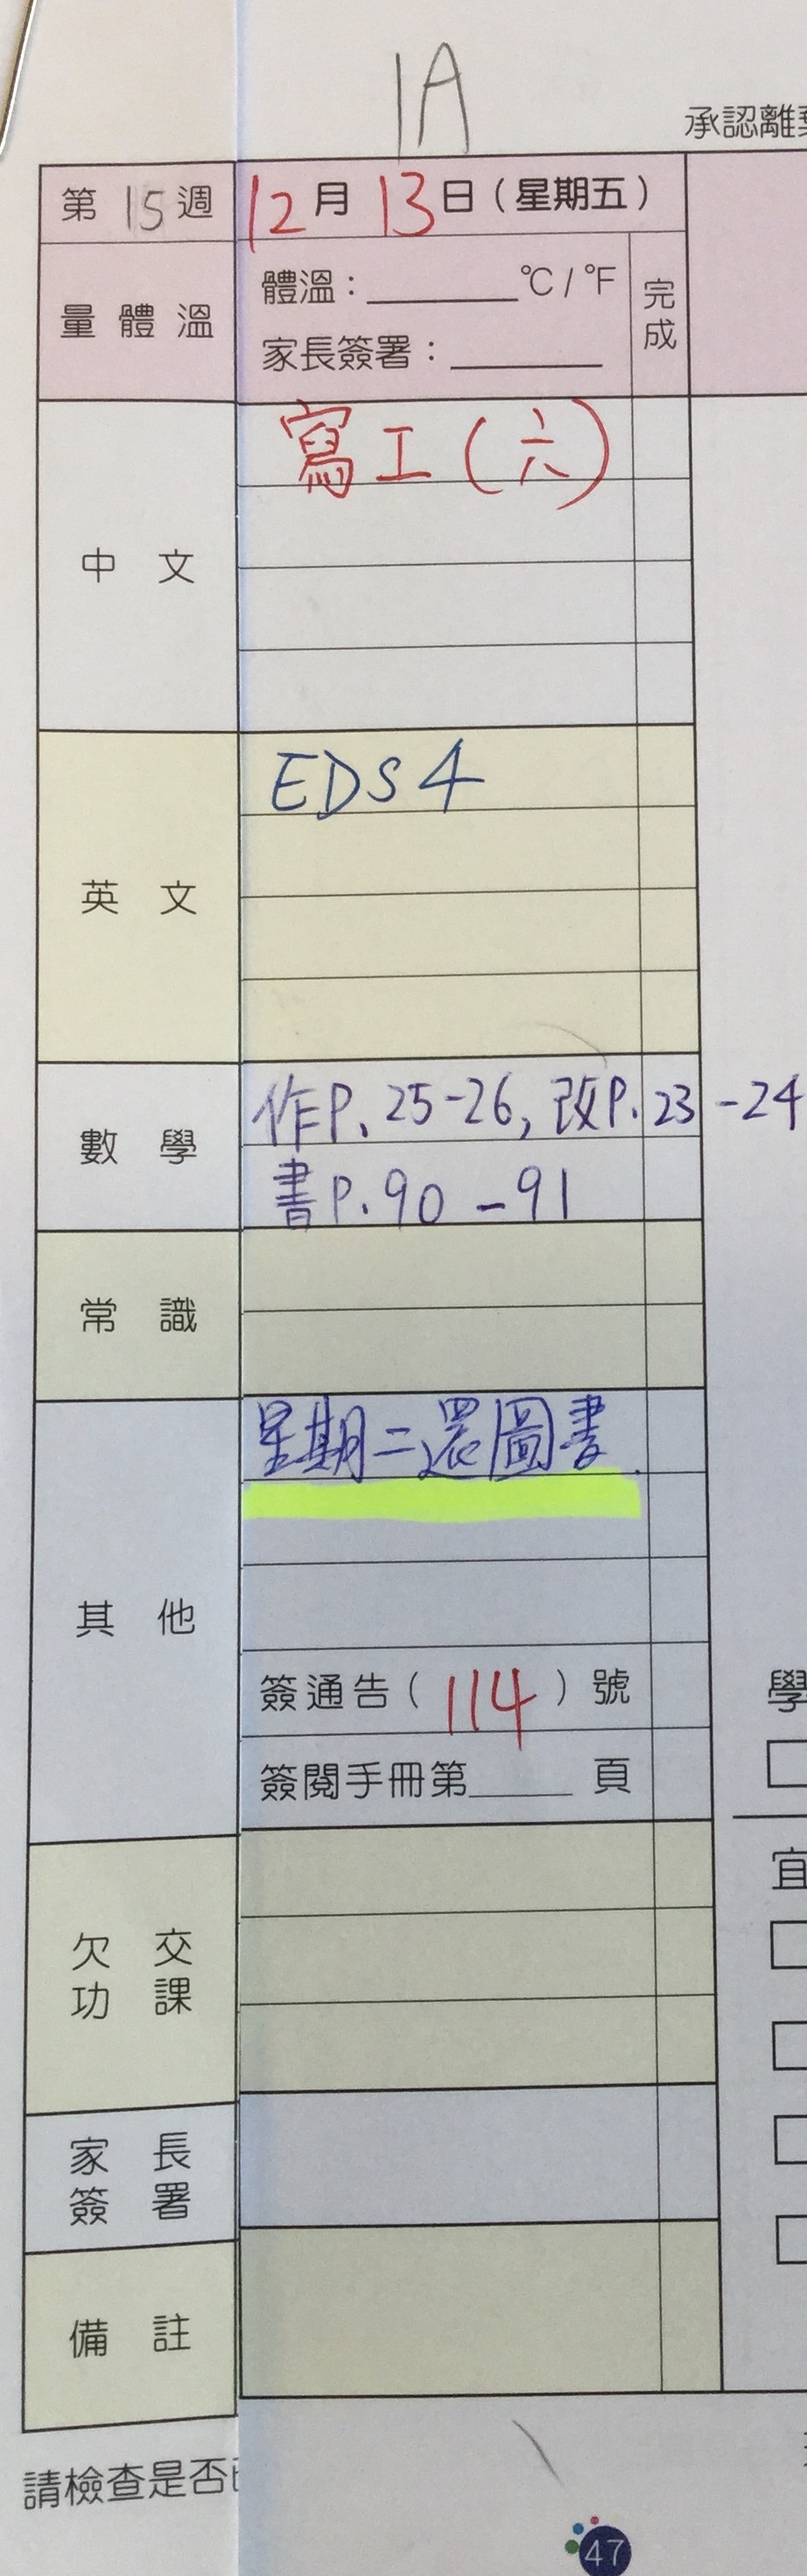 1A
承認離
第15週 12月13日(星期五)
量體溫 體溫：______°C/°F 完成
家長簽署：______
中文 寫工(六)
英文 EDS4
數學 作P.25-26, 改P.23-24
書P.90-91
常識
其他 星期二還圖書
簽通告(114)號
學
簽閱手冊第____頁
宜
欠交
功課
家長
簽署
備註
請檢查是否
47